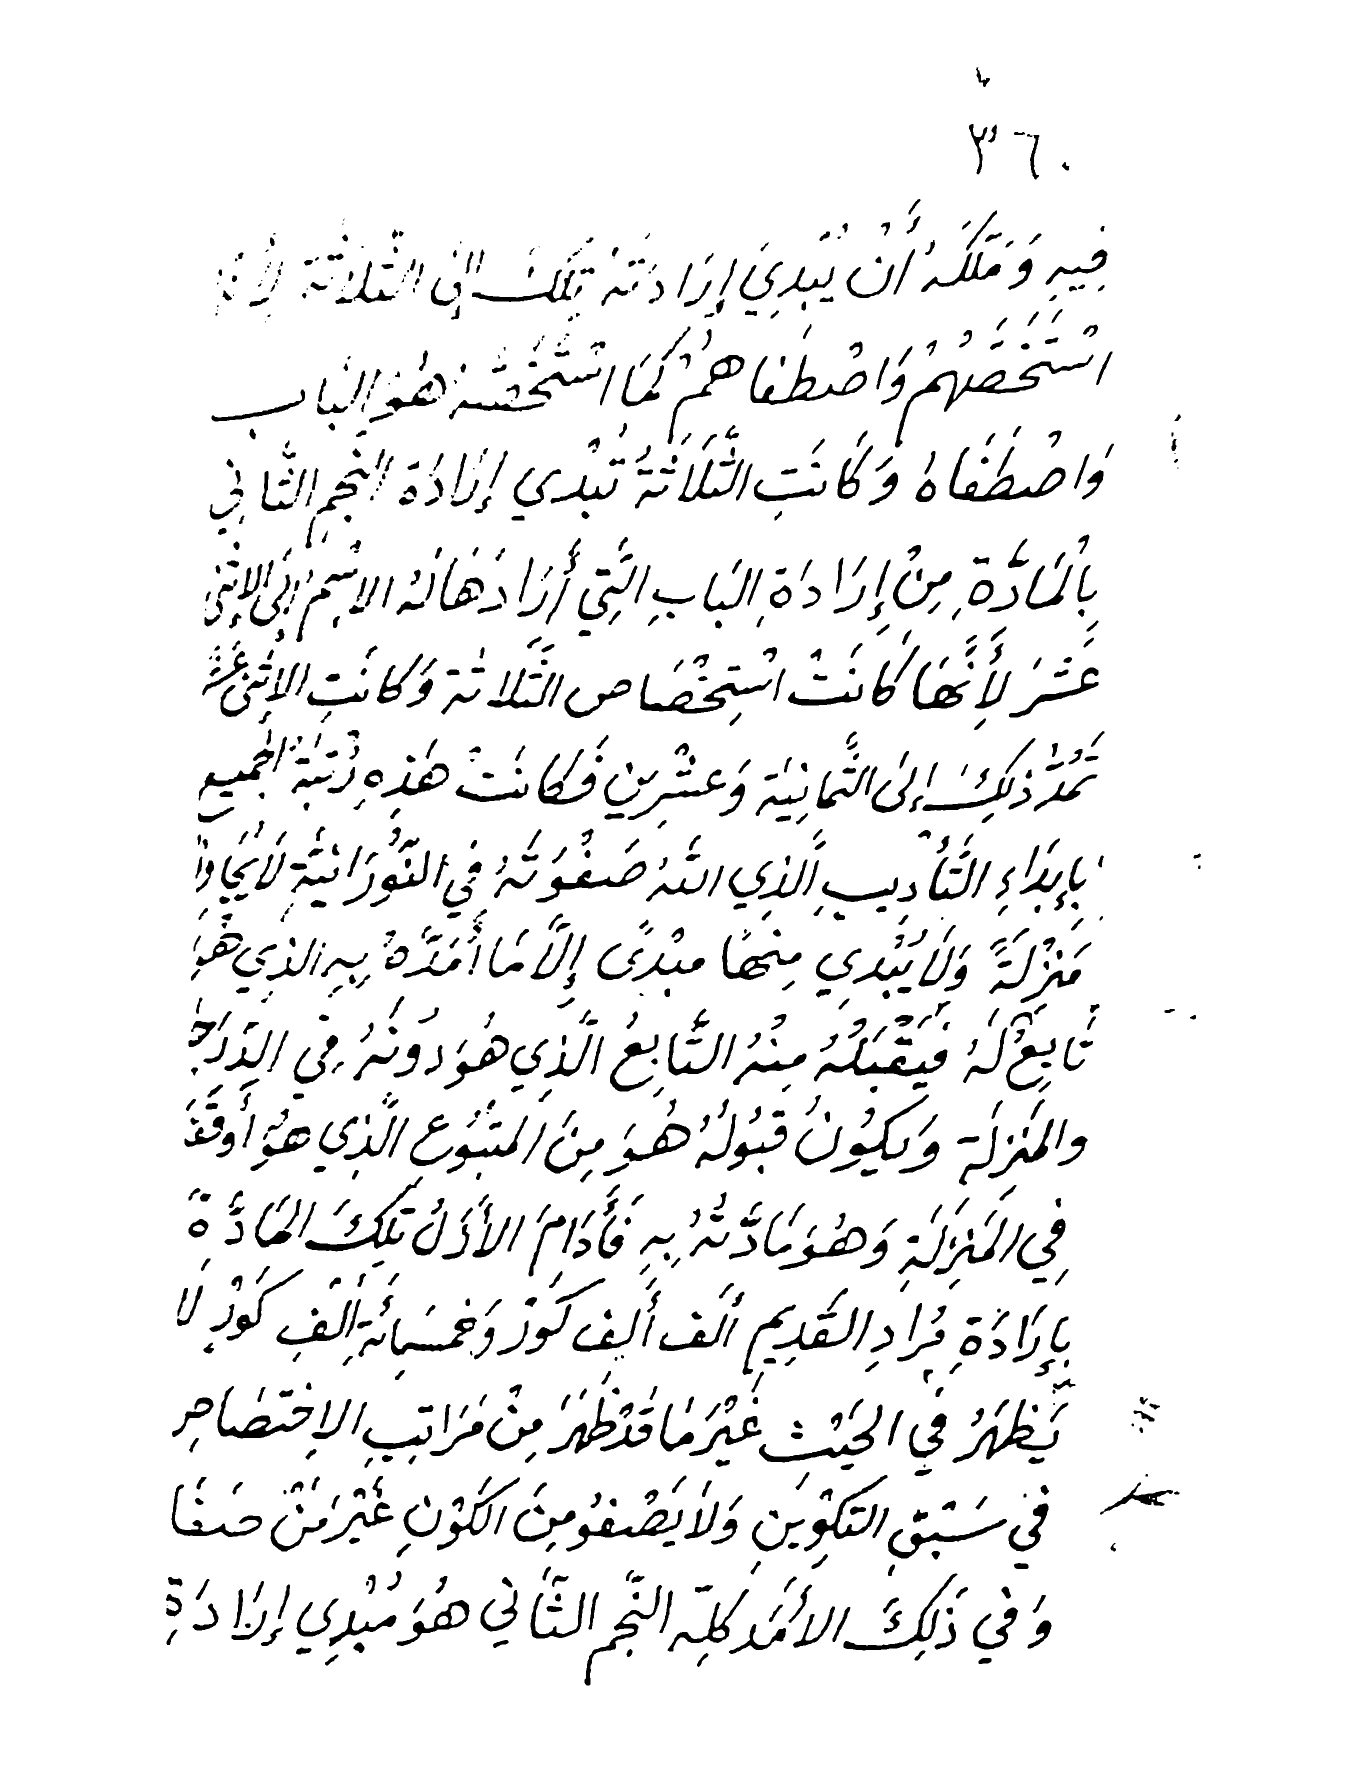 ٣٦٠
فِيهِ وَمَلَّكَهُ أَنْ يُبْدِيَ إِرَادَتَهُ تِلْكَ إلى الثَّلَاثَةِ لِأَنَّهُ
اسْتَخَصَّهُمْ وَاصْطَفَاهُمْ كَمَا اسْتَخَصَّهُ هُوَ البَاب
وَاصْطَفَاهُ وَكَانَتِ الثَّلَاثَةُ تُبْدي إرَادَةَ النَّجِمِ الثَّانِي
بِالْمَادَّةِ مِنْ إِرَادَةِ البَابِ الَّتِي أَرَادَهَا لَهُ الاسْمُ إلَى الإثنى
عَشَرَ لِأَنَّهَا كَانَتْ اسْتِخْصَاص الثَّلَاثَة وَكَانَتِ الإثنى عَشَرَ
تَمُدُّ ذلِكَ إلىَ الثَّمانِيَة وَعشْرِين فَكانَتْ هَذِهِ رُتْبَةُ الجَمِيع
بِإِبدَاءِ التَّأدِيبِ الَّذِي اللهُ صَفْوَتُهُ فِي النُّورَانيَّةِ لَا يُجَاوِزُ
مَنزِلَةً وَلَا يُبْدِي مِنهَا مبْدىً إِلَّا مَا أُمَدَّهُ بِهِ الذِي هُوَ
تَابِعٌ لَهُ فَيَقْبَلُهُ مِنْهُ التَّابِعُ الَّذِي هُوَ دُونَهُ فِي الدَّرَجَةِ
والمَنزِلَة وَيكُونُ قبُولُهُ هُوَ مِنَ المتبُوعِ الَّذِي هُوَ أوقَفَهُ
فِي المَنزِلَةِ وَهُوَ مَادَّتُهُ بِهِ فَأَدَامَ الأَزَلُ تِلكَ المَادَّةَ
بِإِرَادَةِ مُرادِ القَدِيمِ أَلفَ أَلفِ كَوْرٍ وَخمسَمِائَةِ أَلفِ كَوْرٍ لَا
يَظهَرُ فِي الحَيْث غَيْرَ مَا قَدْ ظَهَرَ مِنْ مَرَاتبِ الإختِصَاص
في سَبْقِ التكوِينِ وَلَا يَصْفُو مِنَ الكَوْنِ غَيْرَ مَنْ صَفَا
وَفي ذَلِكَ الأَمَد كلِّهِ النَّجم الثَّاني هُوَ مُبْدِي إرَادَةِ